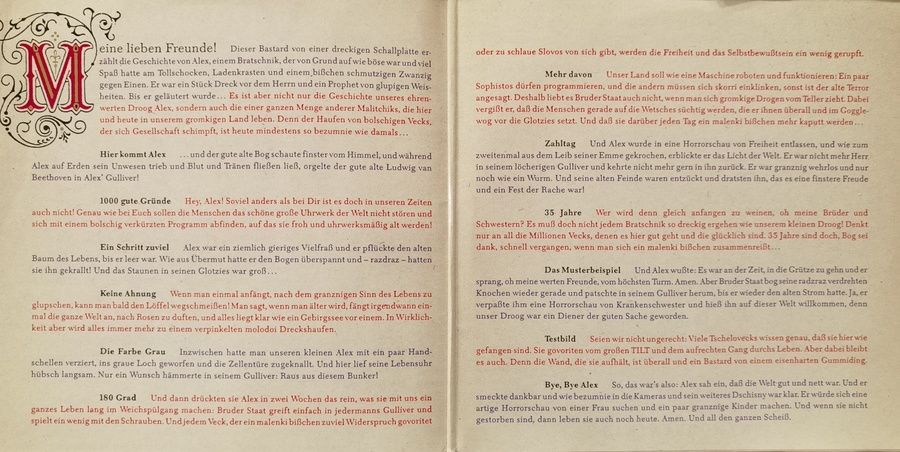 Meine lieben Freunde! Dieser Bastard von einer dreckigen Schallplatte er-
zählt die Geschichte von Alex, einem Bratschnik, der von Grund auf wie böse war und viel
Spaß hatte am Tollschocken, Ladenkrasten und einem bißchen schmutzigen Zwanzig
gegen Einen. Er war ein Stück Dreck vor dem Herrn und ein Prophet von glupigen Weis-
heiten. Bis er geläutert wurde... Es ist aber nicht nur die Geschichte unseres ehren-
werten Droog Alex, sondern auch die einer ganzen Menge anderer Malitchiks, die hier
und heute in unserem gromkigen Land leben. Denn der Haufen von bolschigen Vecks,
der sich Gesellschaft schimpft, ist heute mindestens so bezumnie wie damals...
Hier kommt Alex ...und der gute alte Bog schaute finster vom Himmel, und während
Alex auf Erden sein Unwesen trieb und Blut und Tränen fließen ließ, orgelte der gute alte Ludwig van
Beethoven in Alex' Gulliver!
1000 gute Gründe Hey, Alex! Soviel anders als bei Dir ist es doch in unseren Zeiten
auch nicht! Genau wie bei Euch sollen die Menschen das schöne große Uhrwerk der Welt nicht stören und
sich mit einem bolschig verkürzten Programm abfinden, auf das sie froh und uhrwerksmäßig alt werden!
Ein Schritt zuviel Alex war ein ziemlich gieriges Vielfraß und er pflückte den alten
Baum des Lebens, bis er leer war. Wie aus Übermut hatte er den Bogen überspannt und – razdraz – hatten
sie ihn gekrallt! Und das Staunen in seinen Glotzies war groß...
Keine Ahnung Wenn man einmal anfängt, nach dem granznigen Sinn des Lebens zu
glupschen, kann man bald den Löffel wegschmeißen! Man sagt, wenn man älter wird, fängt irgendwann ein-
mal die ganze Welt an, nach Rosen zu duften, und alles liegt klar wie ein Gebirgssee vor einem. In Wirklich-
keit aber wird alles immer mehr zu einem verpinkelten molodoi Dreckshaufen.
Die Farbe Grau Inzwischen hatte man unseren kleinen Alex mit ein paar Hand-
schellen verziert, ins graue Loch geworfen und die Zellentüre zugeknallt. Und hier lief seine Lebensuhr
hübsch langsam. Nur ein Wunsch hämmerte in seinem Gulliver: Raus aus diesem Bunker!
180 Grad Und dann drückten sie Alex in zwei Wochen das rein, was sie mit uns ein
ganzes Leben lang im Weichspülgang machen: Bruder Staat greift einfach in jedermanns Gulliver und
spielt ein wenig mit den Schrauben. Und jedem Veck, der ein malenki bißchen zuviel Widerspruch govoritet
oder zu schlaue Slovos von sich gibt, werden die Freiheit und das Selbstbewußtsein ein wenig gerupft.
Mehr davon Unser Land soll wie eine Maschine roboten und funktionieren: Ein paar
Sophistos dürfen programmieren, und die andern müssen sich skorri einklinken, sonst ist der alte Terror
angesagt. Deshalb liebt es Bruder Staat auch nicht, wenn man sich gromkige Drogen vom Teller zieht. Dabei
vergißt er, daß die Menschen gerade auf die Wetsches süchtig werden, die er ihnen überall und im Goggle-
wog vor die Glotzies setzt. Und daß sie darüber jeden Tag ein malenki bißchen mehr kaputt werden...
Zahltag Und Alex wurde in eine Horrorschau von Freiheit entlassen, und wie zum
zweitenmal aus dem Leib seiner Emme gekrochen, erblickte er das Licht der Welt. Er war nicht mehr Herr
in seinem löcherigen Gulliver und kehrte nicht mehr gern in ihn zurück. Er war granznig wehrlos und nur
noch wie ein Wurm. Und seine alten Feinde waren entzückt und dratsten ihn, das es eine finstere Freude
und ein Fest der Rache war!
35 Jahre Wer wird denn gleich anfangen zu weinen, oh meine Brüder und
Schwestern? Es muß doch nicht jedem Bratschnik so dreckig ergehen wie unserem kleinen Droog! Denkt
nur an all die Millionen Vecks, denen es hier gut geht und die glücklich sind. 35 Jahre sind doch, Bog sei
dank, schnell vergangen, wenn man sich ein malenki bißchen zusammenreißt...
Das Musterbeispiel Und Alex wußte: Es war an der Zeit, in die Grütze zu gehn und er
sprang, oh meine werten Freunde, vom höchsten Turm. Amen. Aber Bruder Staat bog seine razdraz verdrehten
Knochen wieder gerade und patschte in seinem Gulliver herum, bis er wieder den alten Strom hatte. Ja, er
verpaßte ihm eine Horrorschau von Krankenschwester und hieß ihn auf dieser Welt willkommen, denn
unser Droog war ein Diener der guten Sache geworden.
Testbild Seien wir nicht ungerecht: Viele Tschelovecks wissen genau, daß sie hier wie
gefangen sind. Sie govoriten vom großen TILT und dem aufrechten Gang durchs Leben. Aber dabei bleibt
es auch. Denn die Wand, die sie aufhält, ist überall und ein Bastard von einem eisenharten Gummiding.
Bye, Bye Alex So, das war's also: Alex sah ein, daß die Welt gut und nett war. Und er
smeckte dankbar und wie bezumnie in die Kameras und sein weiteres Dschisny war klar. Er würde sich eine
artige Horrorschau von einer Frau suchen und ein paar granznige Kinder machen. Und wenn sie nicht
gestorben sind, dann leben sie auch noch heute. Amen. Und all den ganzen Scheiß.